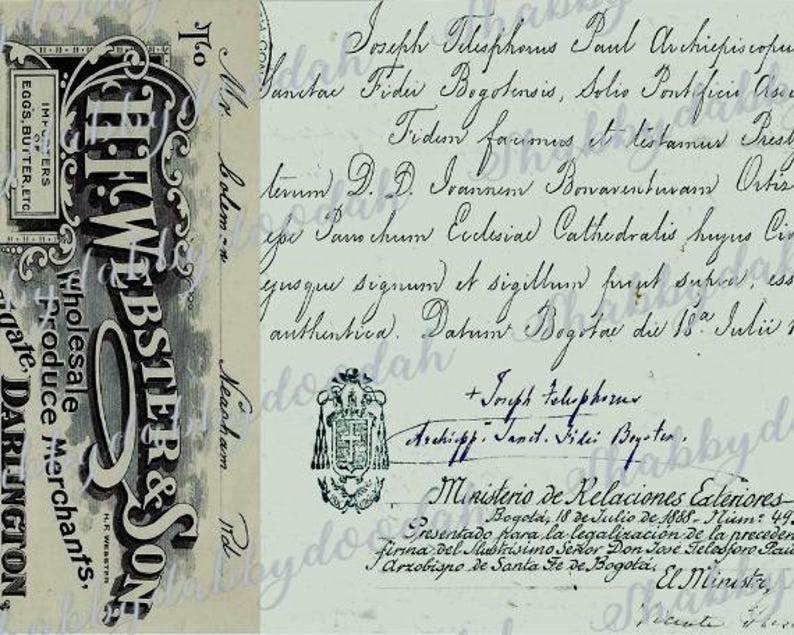 To
Mr. Coleman Newsham Rd
IMPORTERS
OF
EGGS, BUTTER, ETC
WEBSTER & SON
Wholesale
Produce Merchants,
gate, DARLINGTON
H. F. WEBSTER
Joseph Telesphorus Paul Archiepiscopu
Sanctae Fidei Bogotensis, Solio Pontificio
Fidem facimus et testamur Presb
terum D. D. Joannem Bonaventuram Ortiz
esse Parochum Ecclesiae Cathedralis hujus Civ
ejusque signum et sigillum prout supra, ess
authentica. Datum Bogotae die 18ª Julii
+ Joseph Telesphorus
Archiepp. Sanct. Fidei Bogoten.
Ministerio de Relaciones Exteriores
Bogotá, 18 de Julio de 1888 - Núm: 49
Presentado para la legalización de la preceden
firma del Ilustrísimo Señor Don José Telésforo Paúl
Arzobispo de Santa Fe de Bogotá.
El Ministro,
Vicente
Shabbydoodah